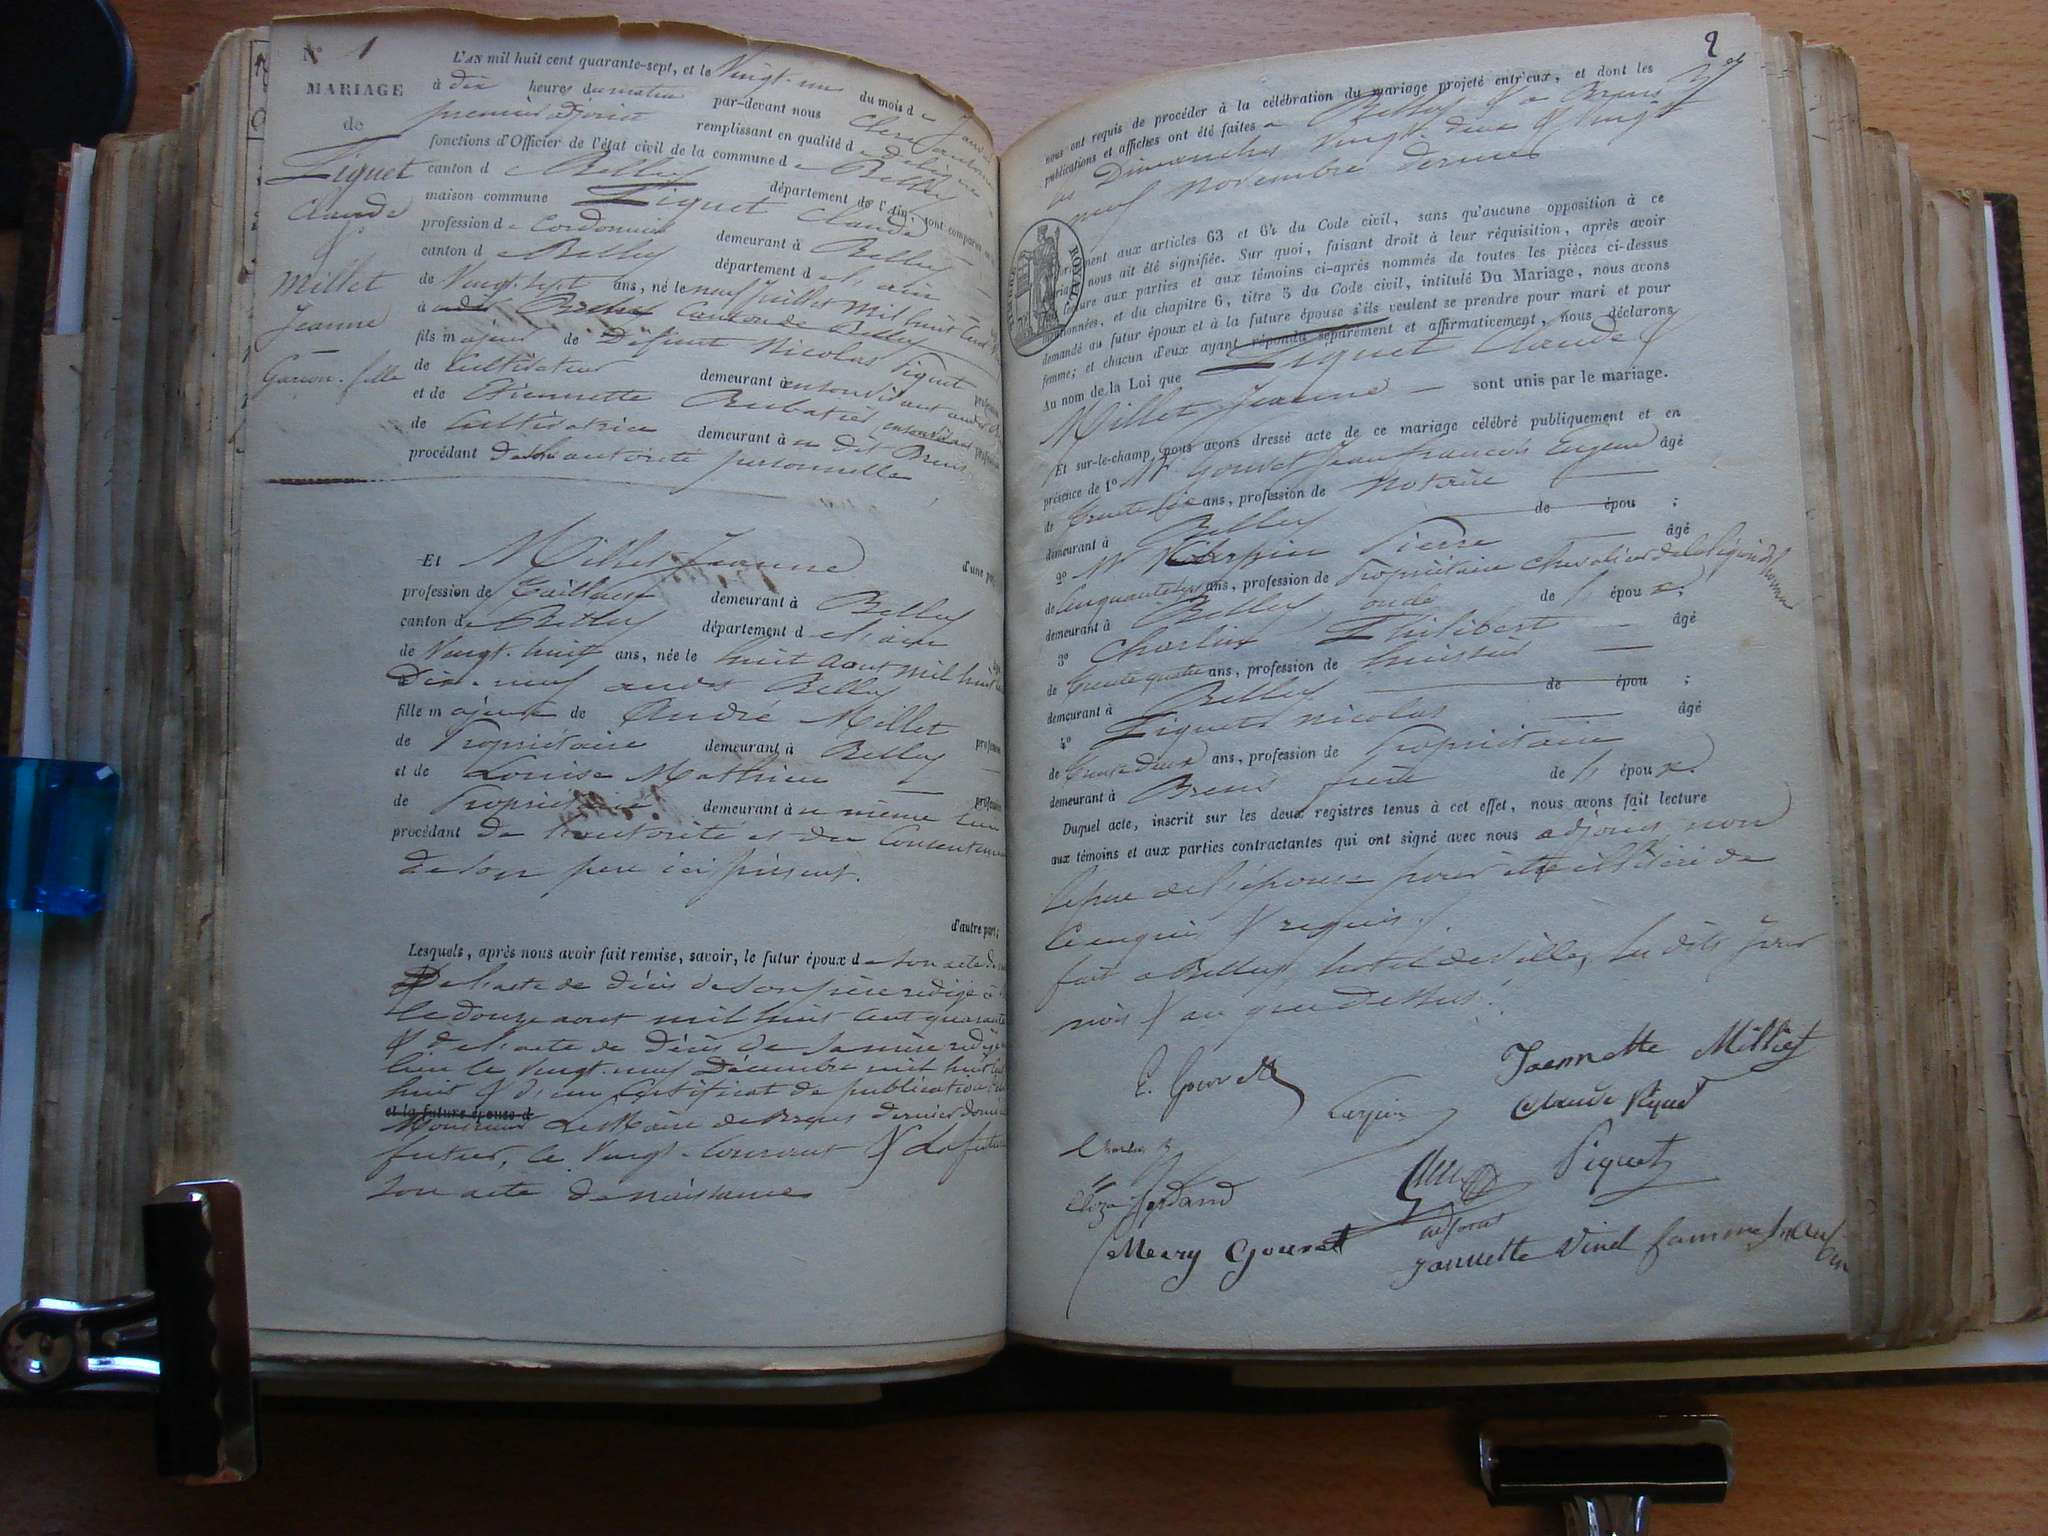 N° 1
MARIAGE
de
Piguet
Claude
&
Millet
Jeanne
Garçon. fille
L'AN mil huit cent quarante-sept, et le Vingt-un du mois de Janvier
à dix heures du matin par-devant nous
premier adjoint remplissant en qualité de délégué
fonctions d'Officier de l'état civil de la commune de Belley
canton de Belley département de l'Ain, sont comparus
maison commune Piguet Claude
profession de Cordonnier demeurant à Belley
canton de Belley département de l'ain
de Vingt-sept ans, né le neuf Juillet mil huit cent
à Canton de Belley
fils majeur de Défunt Nicolas Piguet
de Cultivateur demeurant à en son vivant
et de Etiennette
de Cultivatrice demeurant à dit Brens
procédant de son autorité personnelle
Et Millet Jeanne d'une part
profession de Tailleuse demeurant à Belley
canton de Belley département de l'ain
de Vingt-huit ans, née le huit Aout mil huit
Dix-neuf Belley
fille majeure de André Millet
de Propriétaire demeurant à Belley
et de Louise Mathieu
de Propriétaire demeurant à même lieu
procédant de l'autorité et du Consentement
de son père ici présent.
d'autre part;
Lesquels, après nous avoir fait remise, savoir, le futur époux de son acte de
de l'acte de décès de son père rédigé à
le douze aout mil huit cent quarante
& de l'acte de décès de sa mère rédigé
lieu le Vingt-neuf Décembre mil huit cent
huit & d'un Certificat de publication
et la future épouse d
Monsieur Le Maire de Brens dernier domicile
futur, le Vingt Courant & la future
son acte de naissance
2
nous ont requis de procéder à la célébration du mariage projeté entr'eux, et dont les
publications et affiches ont été faites à Belley & à Brens
les Dimanches Vingt deux & Vingt
neuf Novembre dernier
TIMBRE ROYAL
aux articles 63 et 64 du Code civil, sans qu'aucune opposition à ce
nous ait été signifiée. Sur quoi, faisant droit à leur réquisition, après avoir
lecture aux parties et aux témoins ci-après nommés de toutes les pièces ci-dessus
mentionnées, et du chapitre 6, titre 5 du Code civil, intitulé Du Mariage, nous avons
demandé au futur époux et à la future épouse s'ils veulent se prendre pour mari et pour
femme; et chacun d'eux ayant répondu séparément et affirmativement, nous déclarons
Au nom de la Loi que Piguet Claude &
Millet Jeanne sont unis par le mariage.
Et sur-le-champ, nous avons dressé acte de ce mariage célébré publiquement et en
présence de 1° Mr Gouvet Jean François Eugène âgé
de trente six ans, profession de Notaire
demeurant à Belley de épou ;
2° Mr Pierre âgé
de Cinquante ans, profession de Propriétaire Chevalier de la légion d'honneur
demeurant à Belley, oncle de l'époux;
3° Charlin Philibert âgé
de trente quatre ans, profession de huissier
demeurant à Belley de épou ;
4° Piguet Nicolas âgé
de trente deux ans, profession de Propriétaire
demeurant à Brens frère de l'époux.
Duquel acte, inscrit sur les deux registres tenus à cet effet, nous avons fait lecture
aux témoins et aux parties contractantes qui ont signé avec nous adjoint, non
le père de l'épouse pour être illitéré de
ce enquis & requis.
fait à Belley, hotel de Ville, les dits Jour
mois & an que dessus.
E. Gouvet
Jeannette Milliet
Claude Piguet
Piguet
adjoint
Mery Gouvet
Jannette Vinel famme